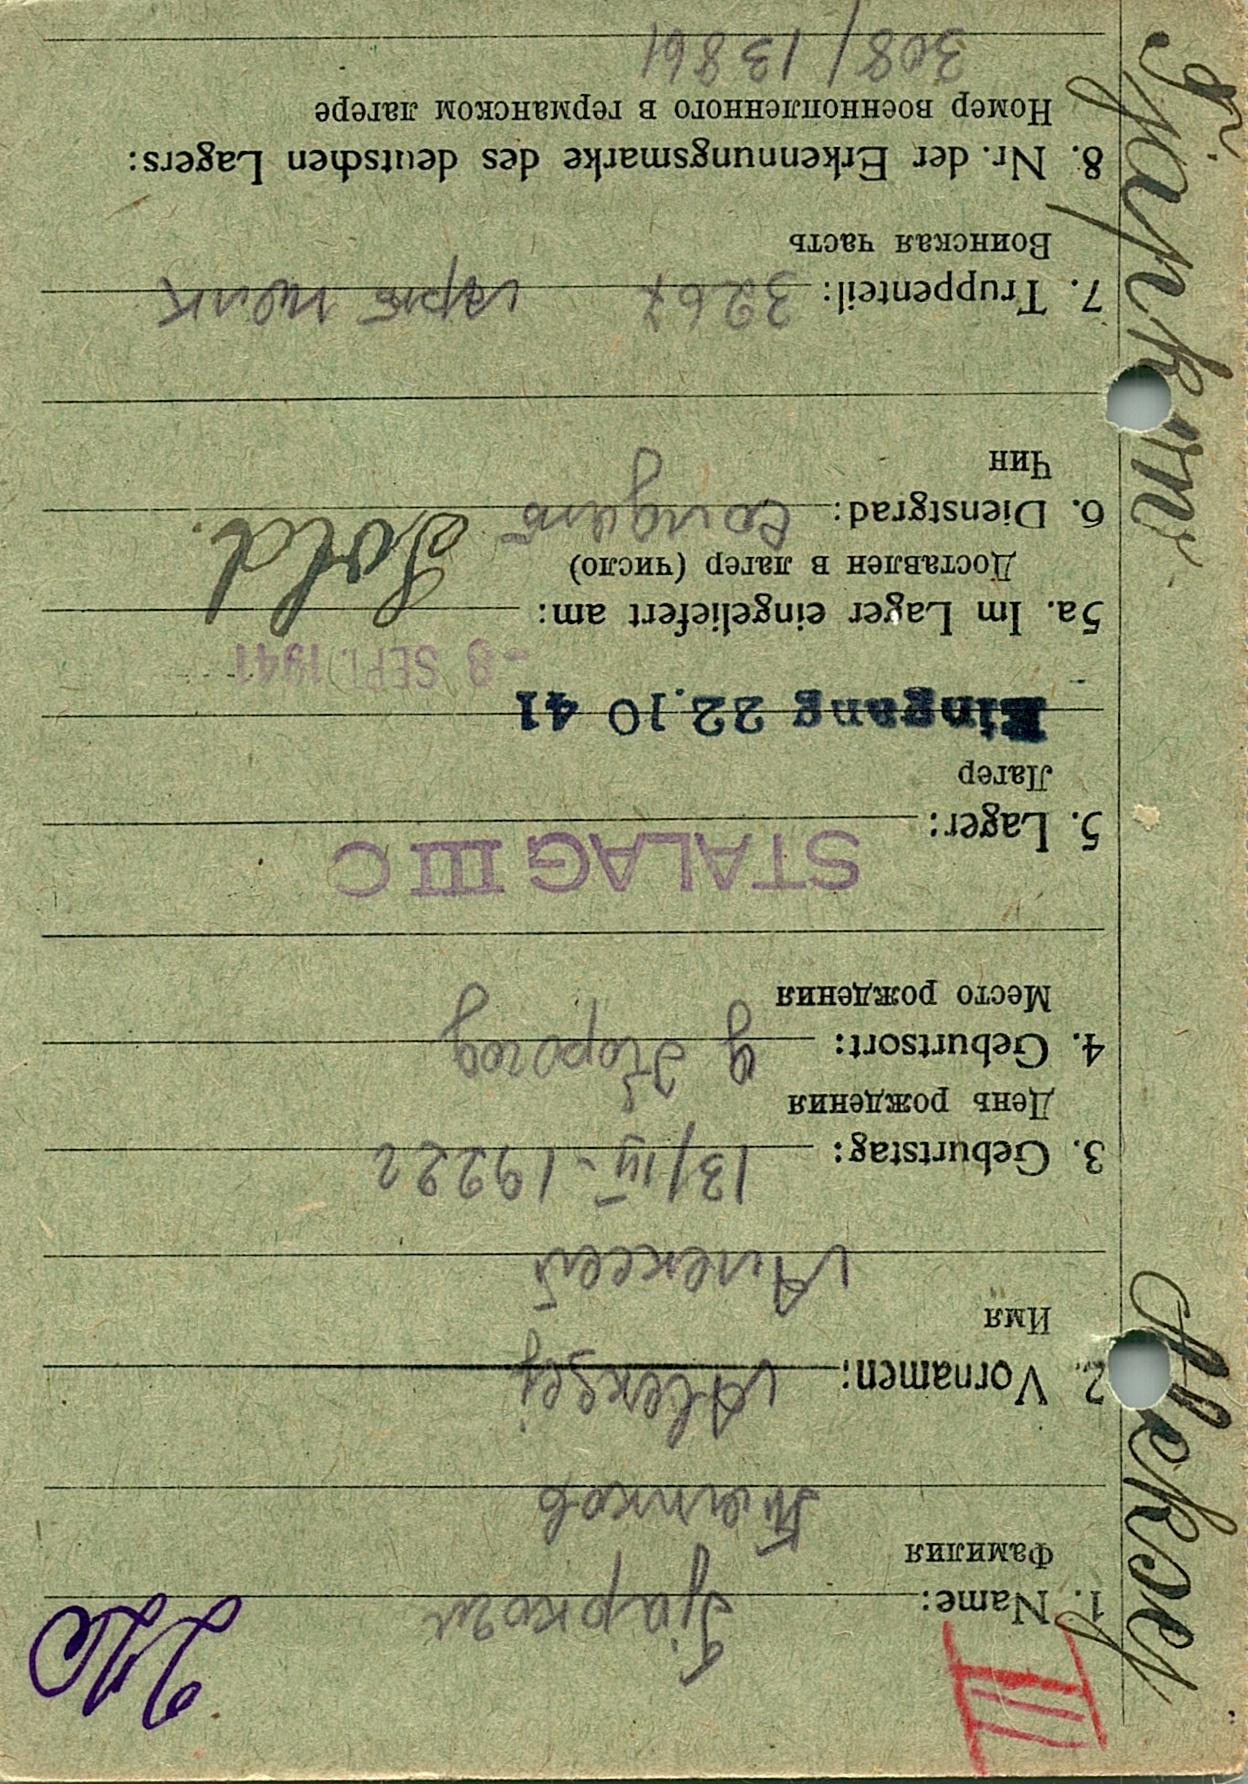 III
1. Name: Tjapkow
Фамилия Тяпков
2. Vornamen: Aleksej
Имя
Алексей
3. Geburtstag: 13/IV-1922г
День рождения
4. Geburtsort:
Место рождения
STALAG III C
5. Lager:
Лагер
Eingang 22.10 41
-8 SEPT. 1941
5a. Im Lager eingeliefert am:
Доставлен в лагер (число) Sold.
6. Dienstgrad: Солдат
Чин
7. Truppenteil: 326
Воинская часть
8. Nr. der Erkennungsmarke des deutschen Lagers:
Номер военнопленного в германском лагере
308/13861
Aleksej